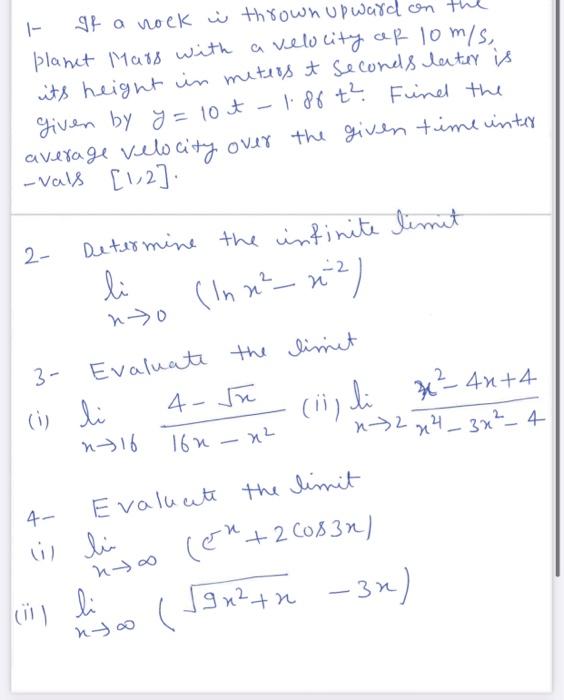 1- If a rock is thrown upward on the
planet Mars with a velocity of 10 m/s,
its height in meters t seconds later is
given by y = 10t - 1.86 t². Find the
average velocity over the given time inter
-vals [1,2].
2- Determine the infinite limit
li x→0 (ln x² - x⁻²)
3- Evaluate the limit
(i) li x→16 (4 - √x)/(16x - x²) (ii) li x→2 (x² - 4x + 4)/(x⁴ - 3x² - 4)
4- Evaluate the limit
(i) li x→∞ (e⁻ˣ + 2 cos 3x)
(ii) li x→∞ (√(9x² + x) - 3x)